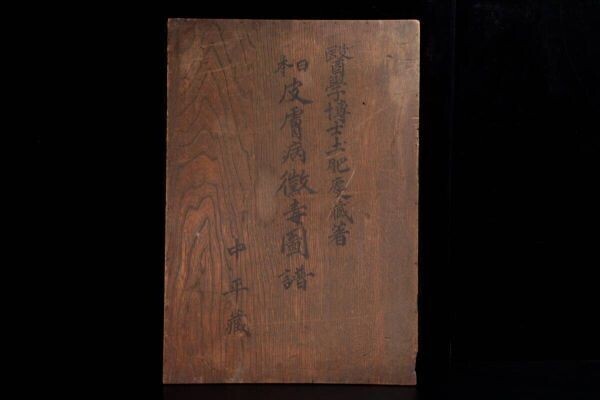 醫學博士土肥慶藏著
日本皮膚病黴毒圖譜
中平藏